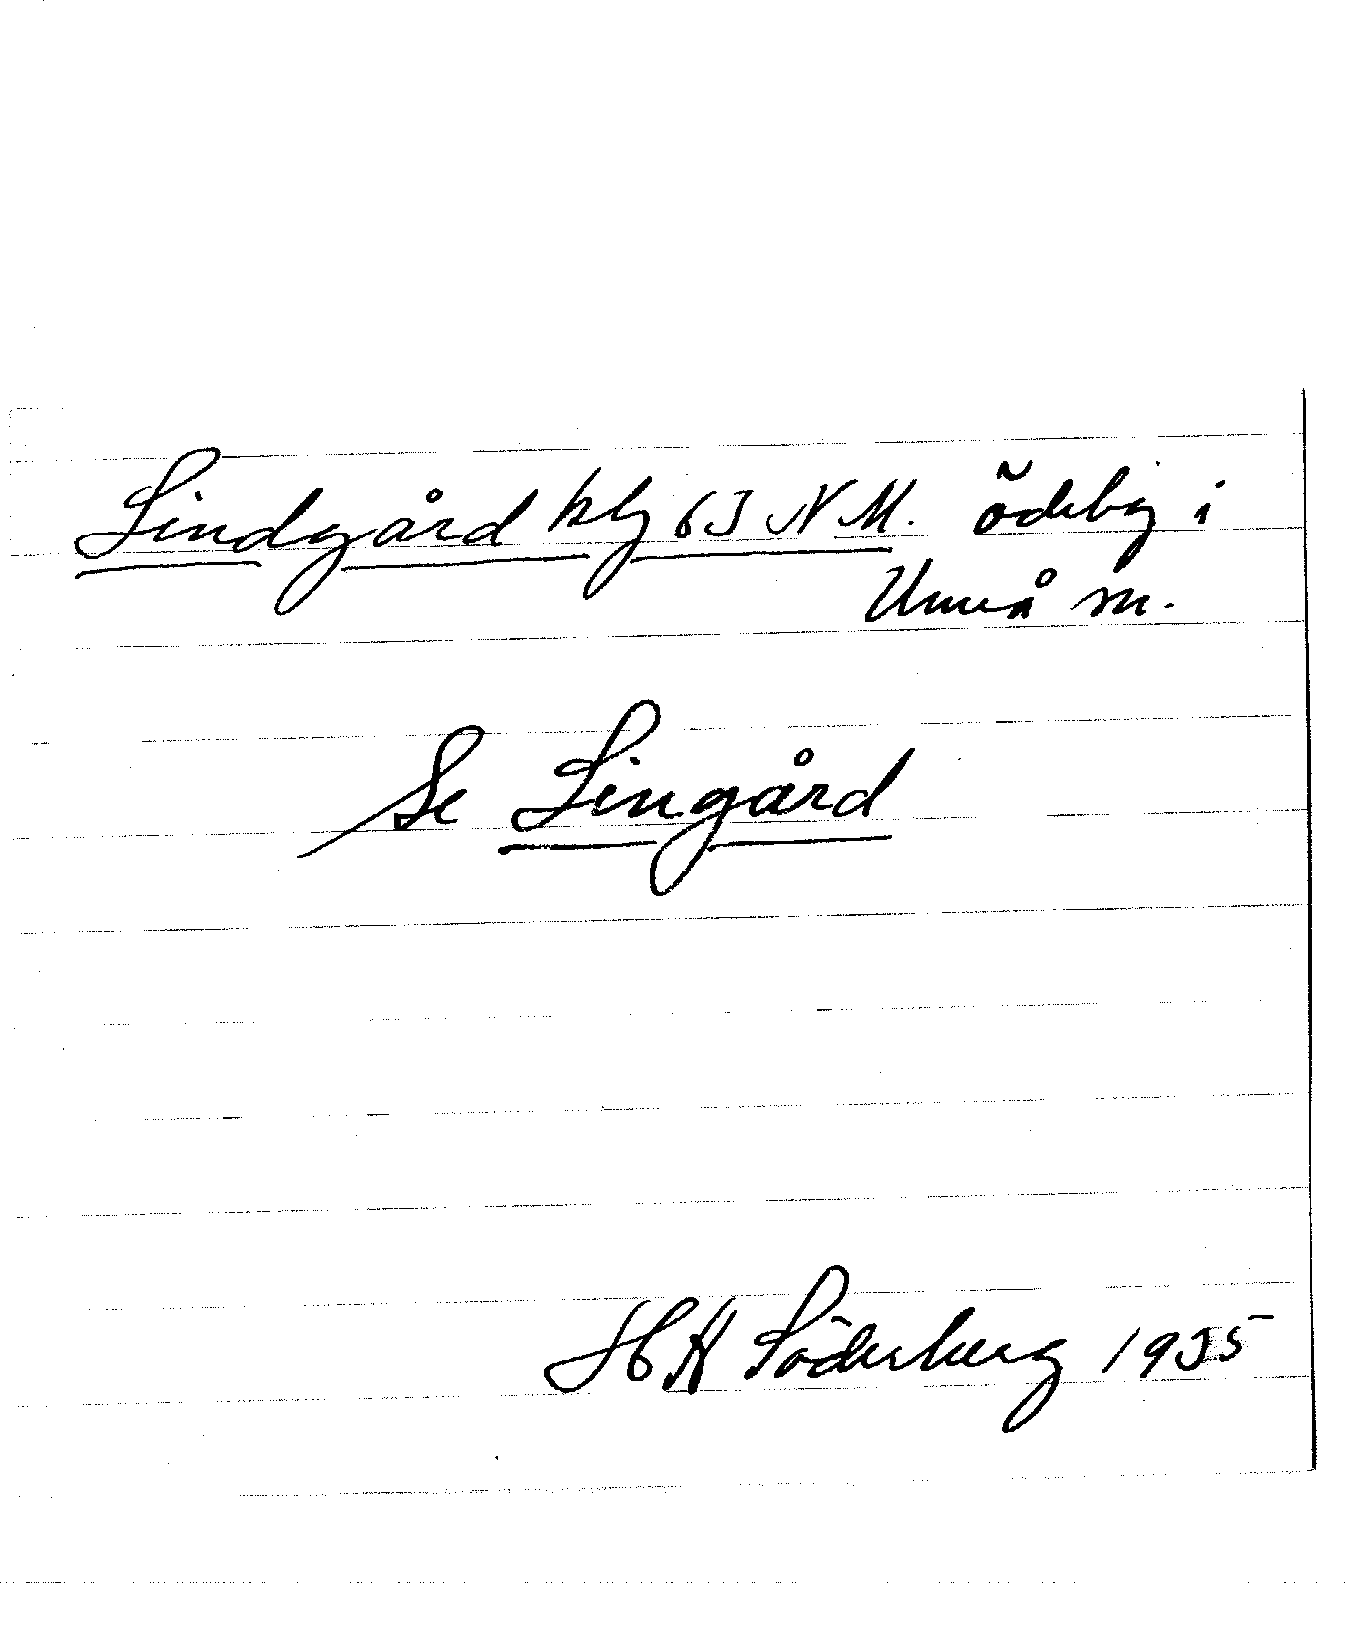 Lindgård blg 63 N M. ödeby i
Umeå m.
Se Lingård
H A Söderberg 1935